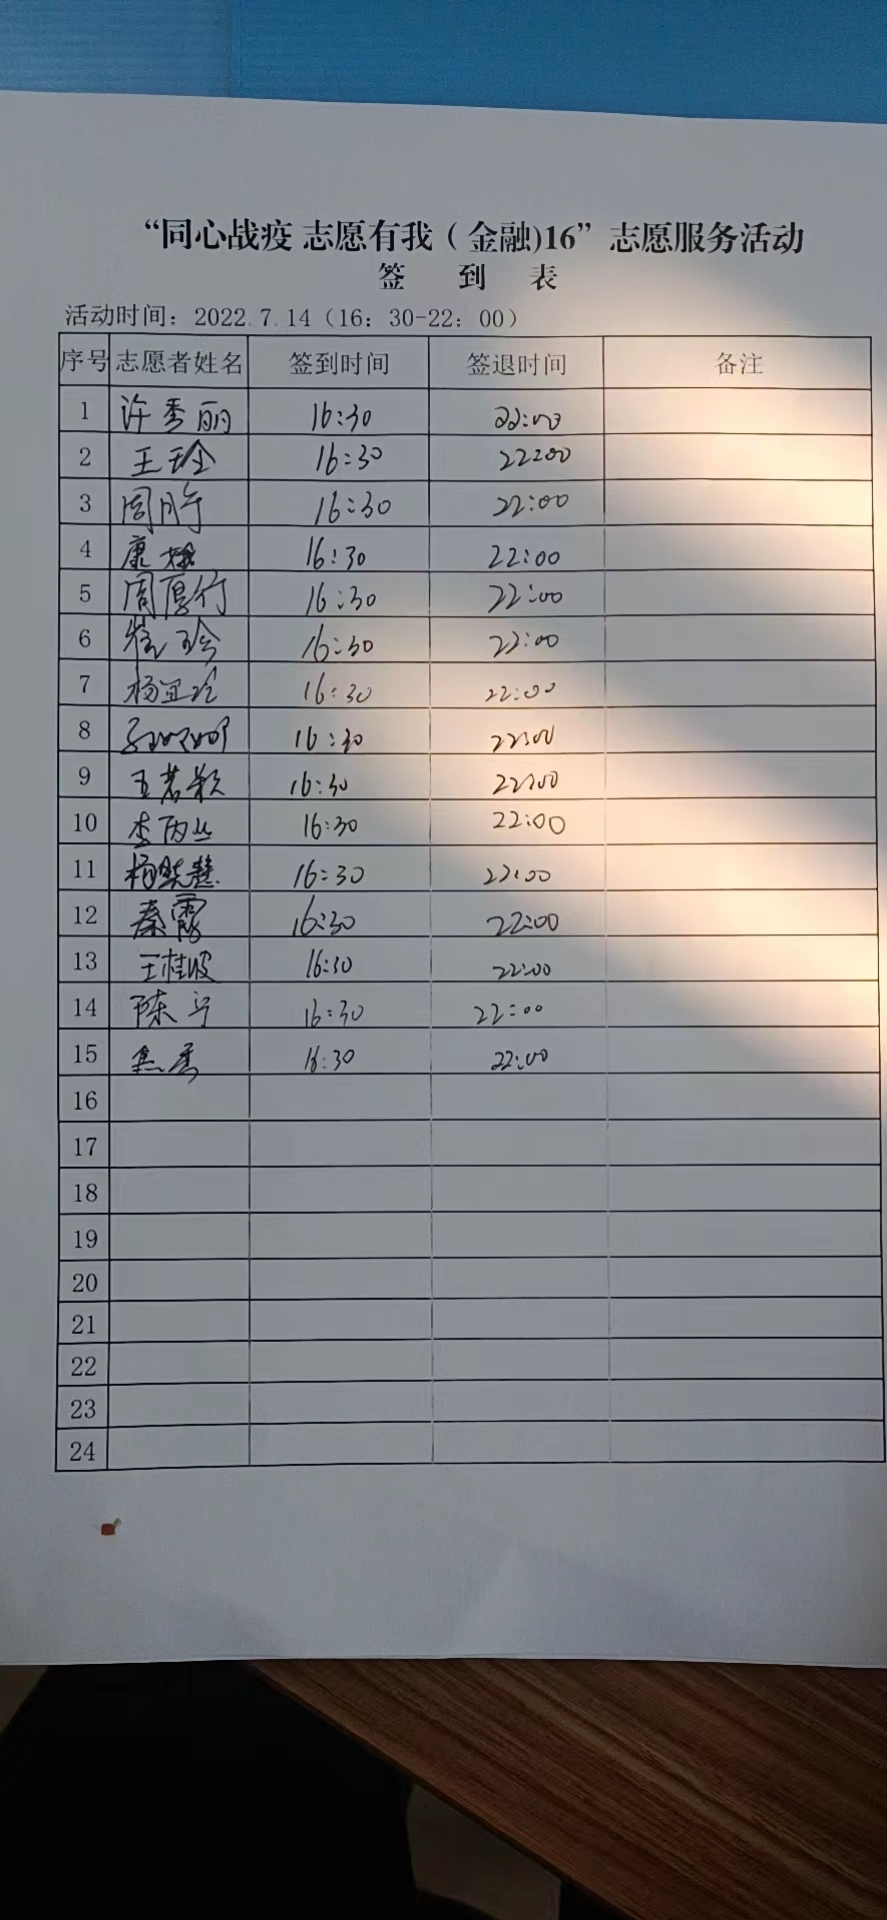 “同心战疫 志愿有我（金融)16”志愿服务活动
签 到 表
活动时间：2022.7.14（16：30-22：00）
序号 志愿者姓名 签到时间 签退时间 备注
1 许秀丽 16:30 22:00
2 王玲 16:30 22:00
3 周 16:30 22:00
4 康 16:30 22:00
5 周厚行 16:30 22:00
6 16:30 22:00
7 杨宜 16:30 22:00
8 16:30 22:00
9 王若 16:30 22:00
10 李丙丛 16:30 22:00
11 杨 慧 16:30 22:00
12 秦霞 16:30 22:00
13 王桂波 16:30 22:00
14 陈宁 16:30 22:00
15 焦秀 16:30 22:00
16
17
18
19
20
21
22
23
24